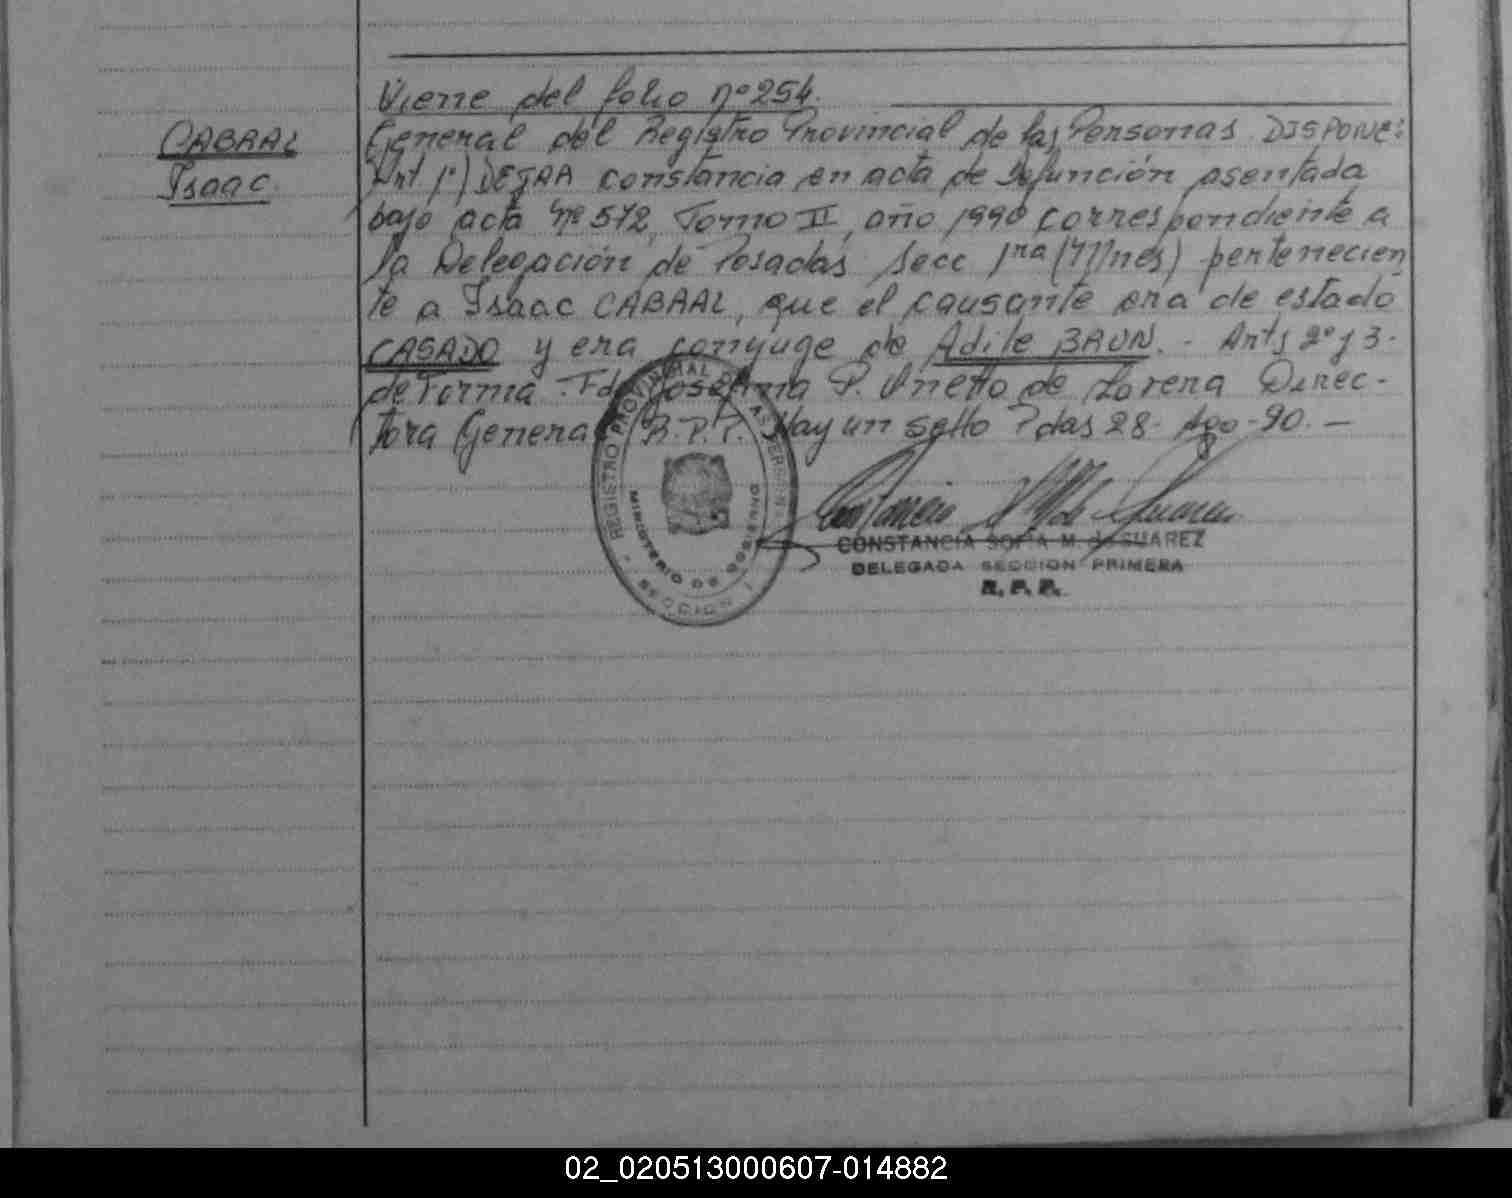 Viene del folio nº 254.
CABRAL
Isaac.
General del Registro Provincial de las Personas DISPONE:
Art 1º) DEJAR constancia en acta de Defunción asentada
bajo acta nº 572, Tomo II, año 1990 correspondiente a
la Delegación de Posadas Secc 1ra (Mnes) pertenecien
te a Isaac CABRAL, que el causante era de estado
CASADO y era conyuge de Adile BRUN. - Arts 2º y 3-
de Forma. Fdo Josefina P. de Lorena Direc-
tora General R.P.P. Hay un sello Pdas 28- Ago-90. -
REGISTRO PROVINCIAL DE LAS PERSONAS
MINISTERIO DE GOBIERNO
SECCION I
CONSTANCIA SOFIA M. de SUAREZ
DELEGADA SECCION PRIMERA
R. P. P.
02_020513000607-014882